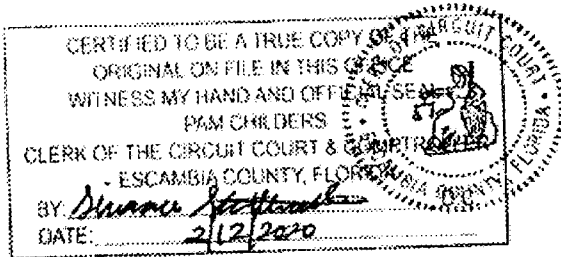 CERTIFIED TO BE A TRUE COPY OF THE
ORIGINAL ON FILE IN THIS OFFICE
WITNESS MY HAND AND OFFICIAL SEAL
PAM CHILDERS
CLERK OF THE CIRCUIT COURT & COMPTROLLER
ESCAMBIA COUNTY, FLORIDA
BY:
DATE: 2/12/2020
CLERK OF CIRCUIT COURT • ESCAMBIA COUNTY, FLORIDA •